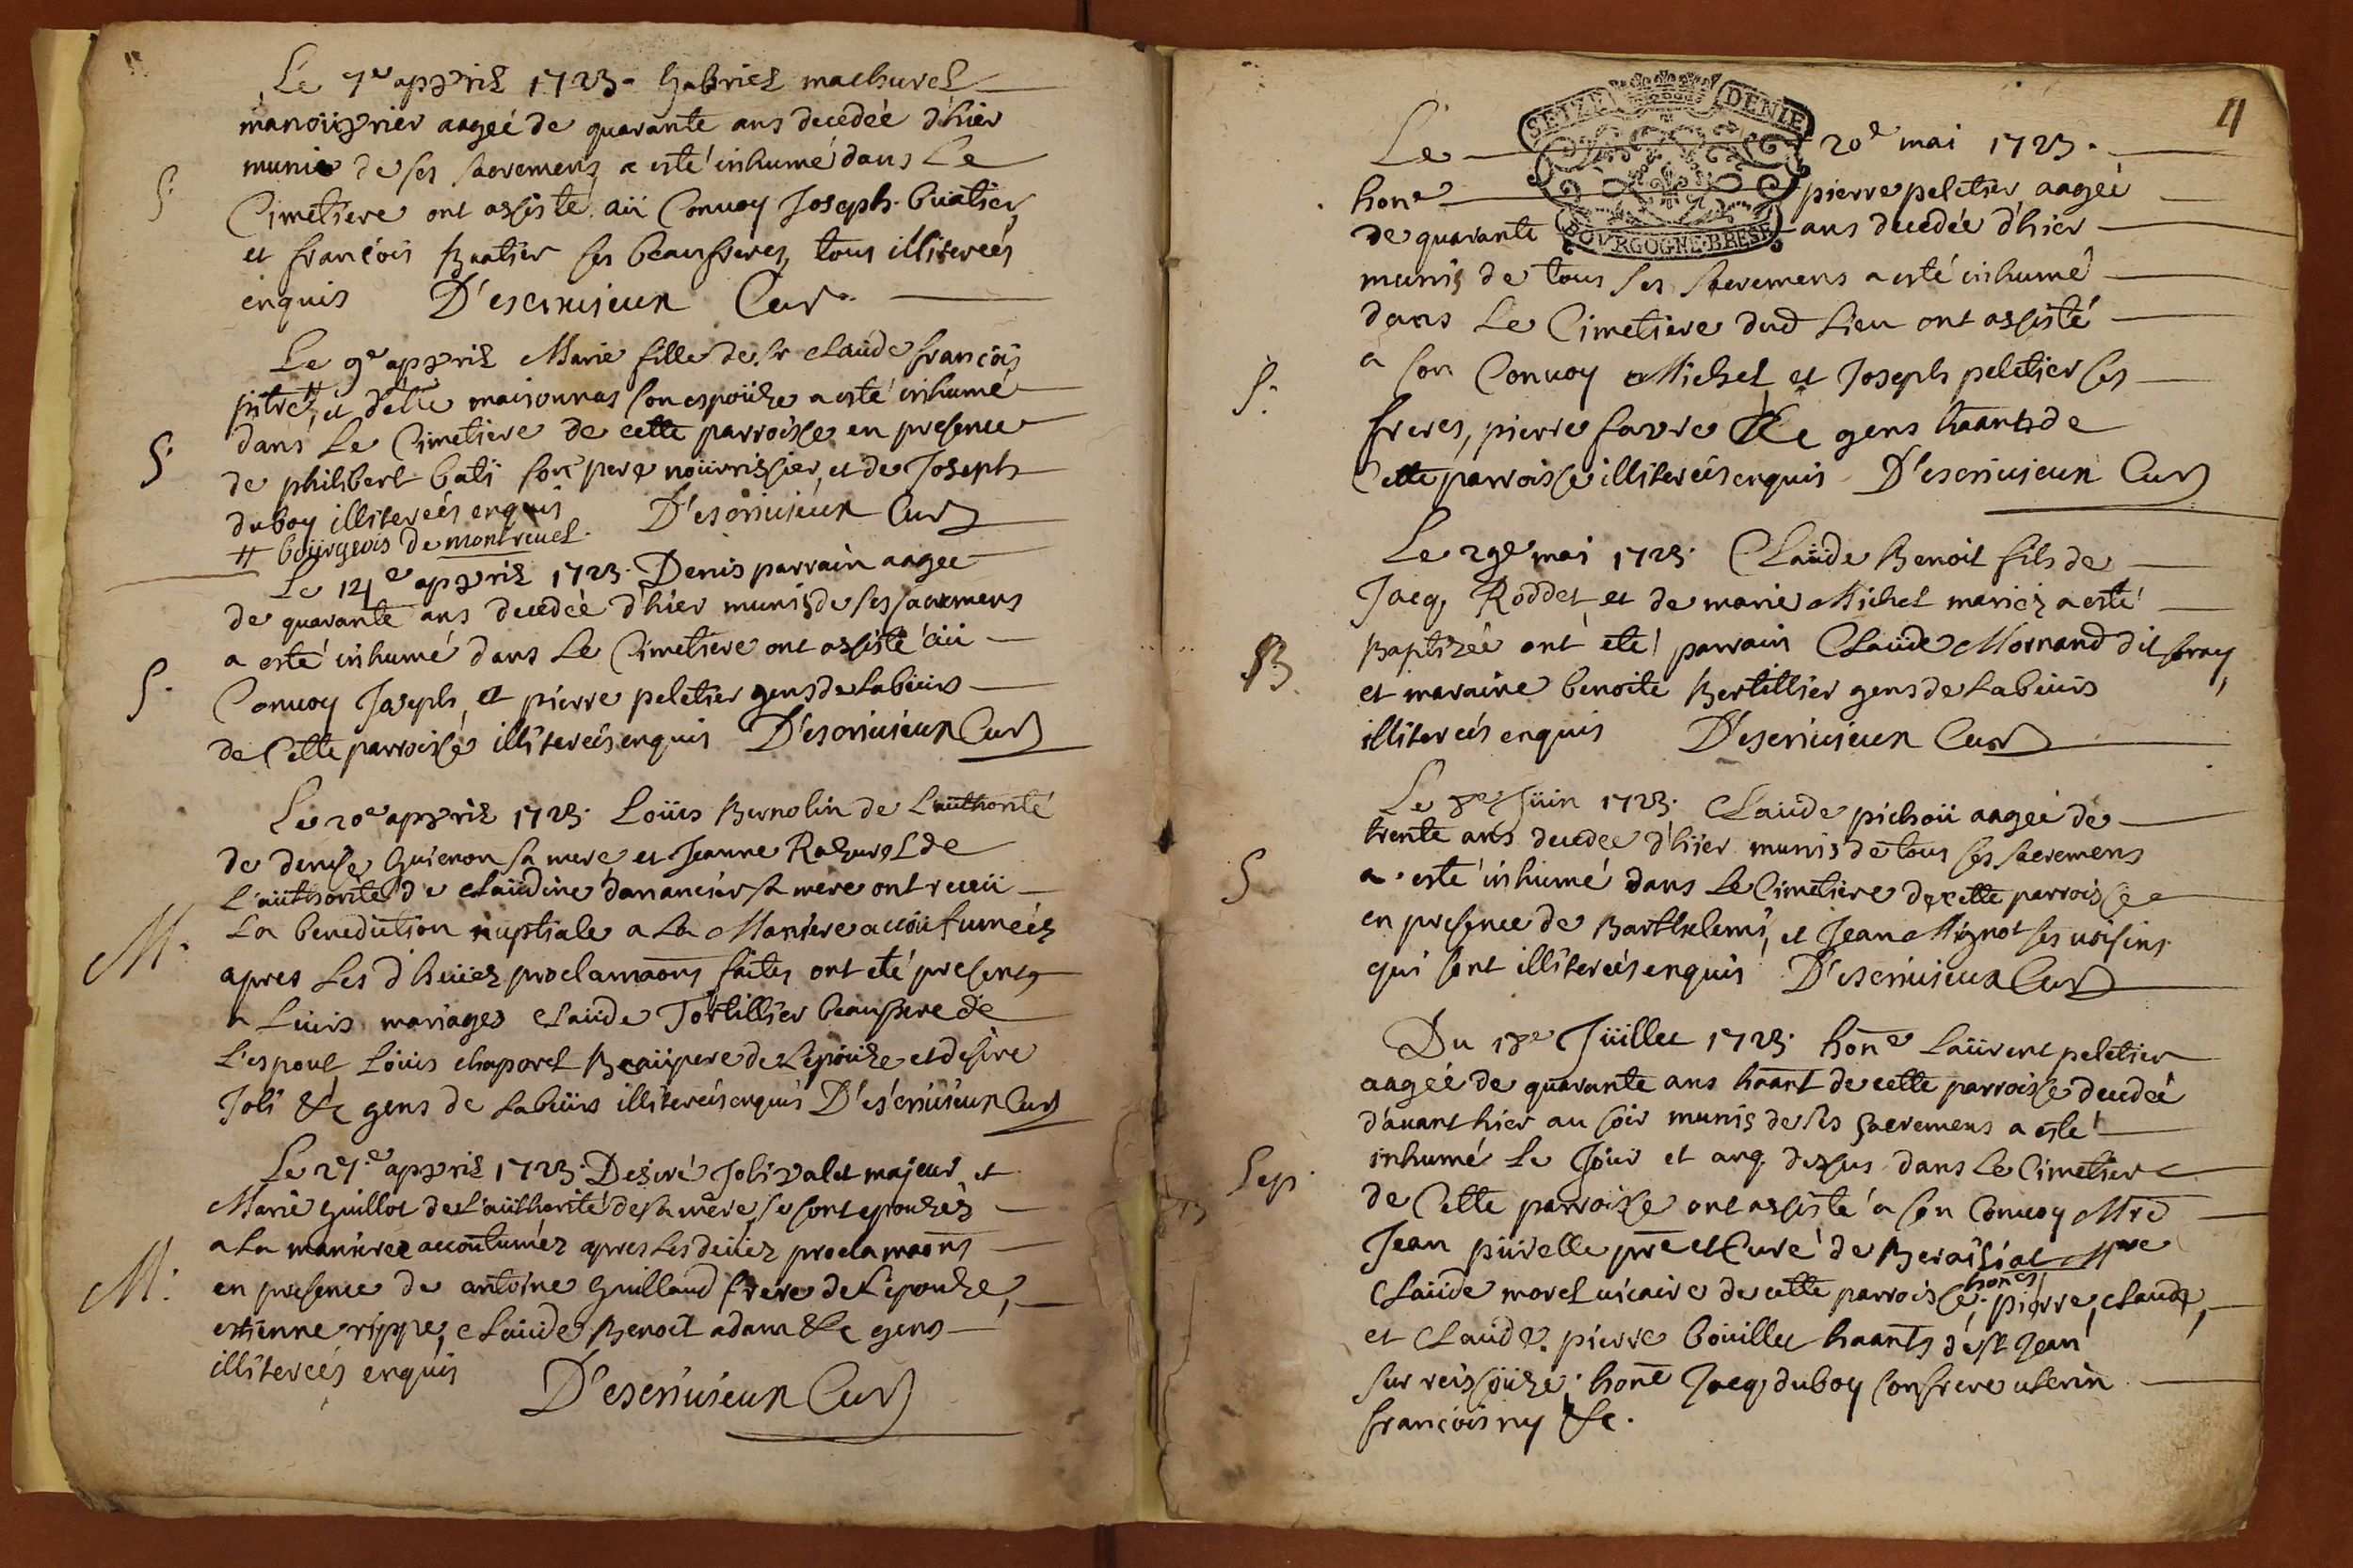 Le 7e appvril 1723. Gabriel machurel
manouuvrier aageé de quarante ans decedéé d'hier
munis de ses sacremens a esté inhumé dans Le
S. Cimetiere ont assisté aü Conuoy Joseph Buatier,
et françois Buatier ses beaufreres, tous illitereés
enquis D'escriuieux Cur.
Le 9e appvril Marie fille de Sr Claüde françois
pitre #, et d'elle maisonnas son espoüze a esté inhumé
S. dans Le Cimetiere de cette parroisse en presence
de philibert bati son pere noürrissier, et de Joseph
duboy illitereés enquis D'escriuieux Cur
# boürgeois de montreuel.
Le 14e appvril 1723. Denis parrain aagee
de quarante ans decedéé d'hier munis de ses sacremens
a esté inhumé dans Le Cimetiere ont assisté aü
S. Conuoy Joseph et pierre peletier gens de Labeurs
de Cette parroisse illitereés enquis D'escriuieux Cur
Le 20e appvril 1723. Loüis Bernolin de Lauthorité
de denise Guienon sa mere et Jeanne Rasurel de
L'aüthorité de Claüdine dananciér sa mere ont receü
M. La benediction nuptiale a La Maniere accoütumeéz
apres Les d heüez proclamaons faites ont eté presents
a Leurs mariages Claüde Tortillier beaufrere de
L'espoux Loüis chaparel Beaüpere de L'epoüze et desire
Joli &c gens de Labeürs illitereés enquis D'escriuieux Cur
Le 27.e appvril 1723. Desiré Joli valet majeur, et
Marie guillot de L'aüthorité de sa mère se sont epouzéz
a La maniere accoütuméz apres Les deüez proclamaons
M. en presence de antoine Guillaud frere de L'epouze,
estienne rippe, Claüde Benoit adam &c gens
illitereés enquis D'escriuieux Cur
4
SEIZE DENIE
BOURGOGNE·BRESE
Le 20e mai 1723.
hone pierre peletier aageé
de quarante ans decedéé d'hier
munis de tous ses sacremens a esté inhumé
dans Le Cimetiere dud Lieu ont assisté
S. a son Conuoy Michel et Joseph peletier ses
freres, pierre favre &c gens haants de
Cette parroisse illitereés enquis D'escriuieux Cur
Le 29e mai 1723. Claüde Benoit fils de
Jacq. Roddet et de marie Michel mariez a esté
B. Baptizeé ont eté parrain Claüde Mornand dit
et maraine benoite Bertillier gens de Labeurs
illitereés enquis D'escriuieux Cur
Le 8e Jüin 1723. Claüde pichoü aageé de
trente ans decedee d'hier munis de tous ses sacremens
S a esté inhumé dans Le Cimetiere de cette parroisse
en presence de Barthelemi, et Jean Mignot ses uoisins
qui sont illitereés enquis D'escriuieux Cur
Du 18e Jüillet 1723. hone Laürent peletier
aageé de quarante ans haant de cette parroisse decedeé
d'auant hier au soir munis de ses sacremens a esté
Sep. inhumé Le Jour et an q. dessus dans Le Cimetiere
de Cette parroisse ont assisté a son Conuoy Mre
Jean püirelle pre et Curé de Beraisiat Mre
Claüde morel uicaire de cette parroisse, hones pierre, claude,
et Claude. pierre boüillet haants de st Jean
sur reissoüze, hone Jacq, duboy son frere uterin
françois ny &c.